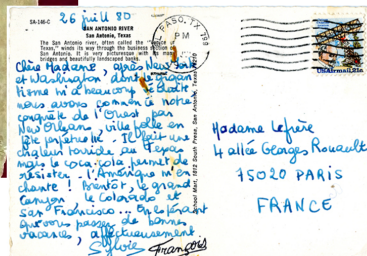 26 juill 80
SA-146-C
SAN ANTONIO RIVER
San Antonio, Texas
The San Antonio river, often called the "
Texas," winds its way through the business section of
San Antonio. It is very picturesque with its many
bridges and beautifully landscaped banks.
Chère Madame, après New York
et Washington dont le gigan
tisme m'a beaucoup séduit
nous avons commencé notre
conquête de l'Ouest par
New Orleans, ville folle en
fête perpétuelle. Il fait une
chaleur torride au Texas
mais le coca cola permet de
résister. L'Amérique m'en
chante ! Bientôt, le grand
Canyon le Colorado et
San Francisco... En espérant
que vous passez de bonnes
vacances, affectueusement
Sylvie François
EL PASO, TX 799
PM
USAirmail 21c
Madame Lefèvre
4 allée Georges Rouault
75020 PARIS
FRANCE